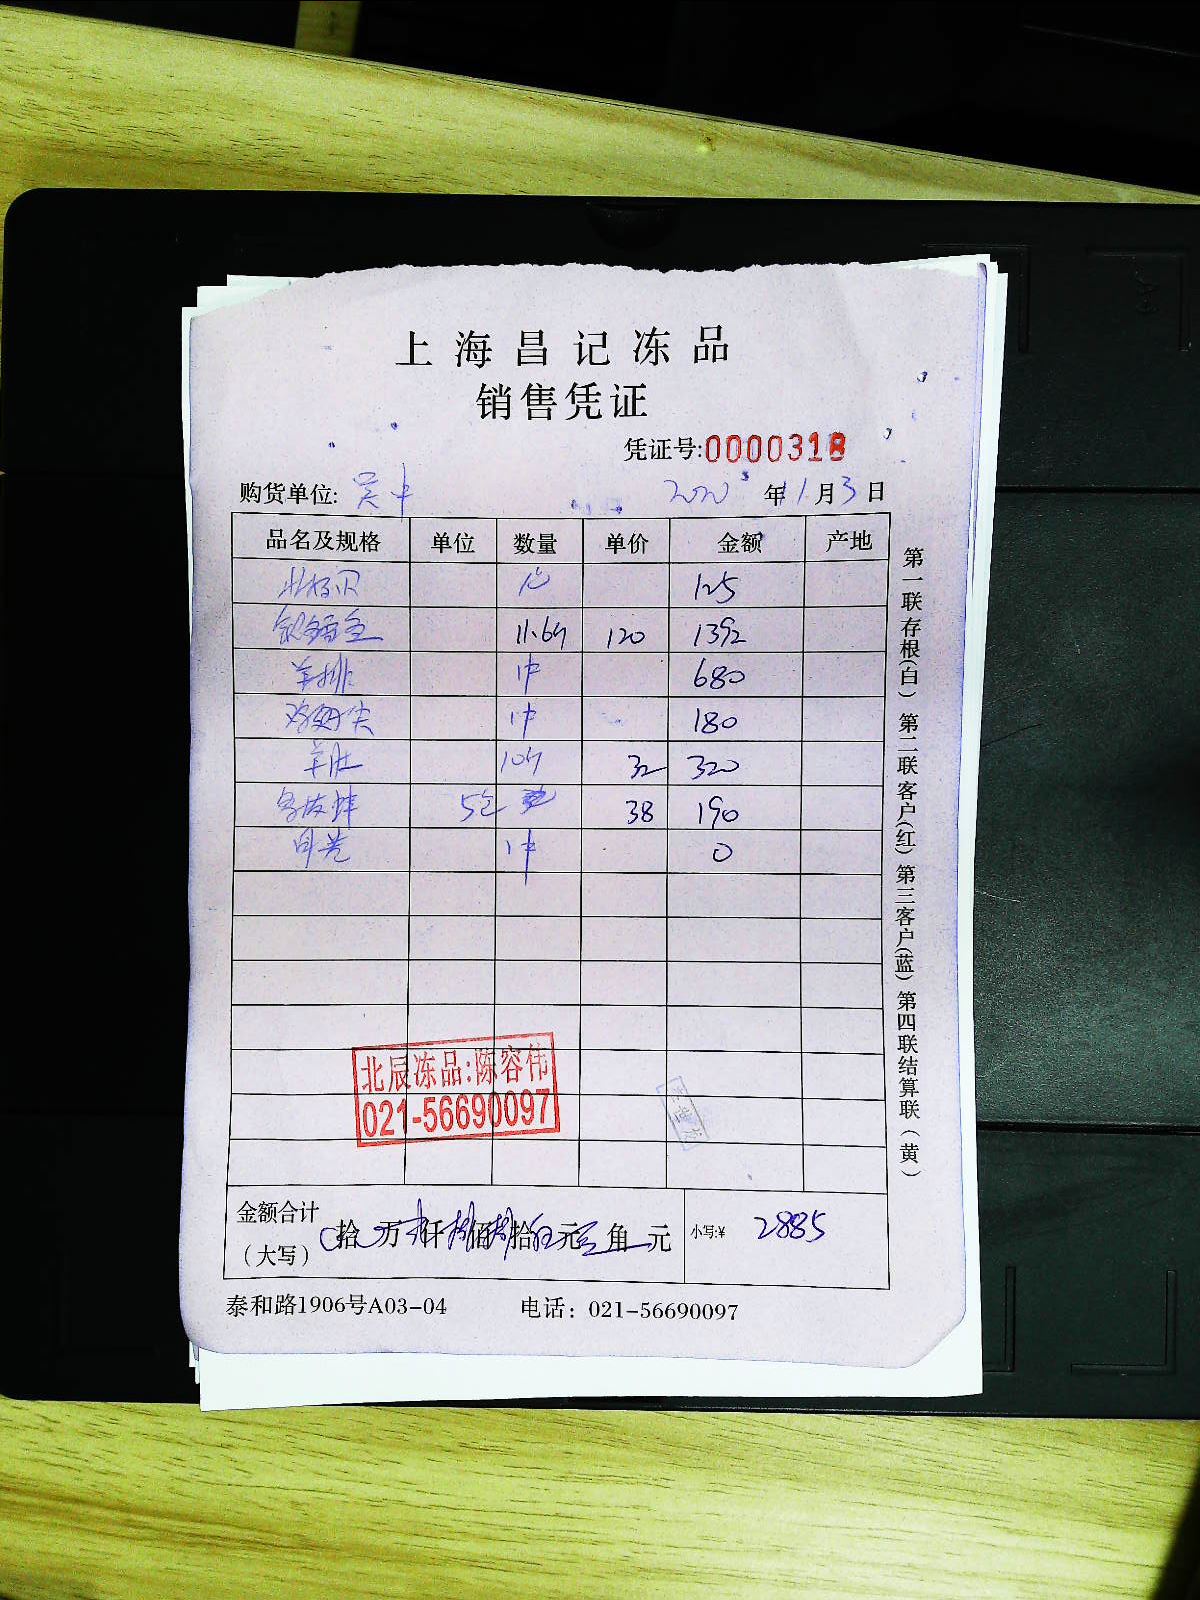 上海昌记冻品
销售凭证
凭证号:0000318
购货单位: 吴中 2020年1月3日
品名及规格 单位 数量 单价 金额 产地
北极贝 125
银鳕鱼 11.6斤 120 1392
羊排 1件 680
鸡翅尖 1件 180
羊肚 10斤 32 320
5包 38 190
1件 0
北辰冻品:陈容伟
021-56690097
金额合计 拾 万 仟 佰 拾 元 角 元 小写:¥ 2885
（大写）
泰和路1906号A03-04 电话：021-56690097
第一联存根(白) 第二联客户(红) 第三客户(蓝) 第四联结算联(黄)